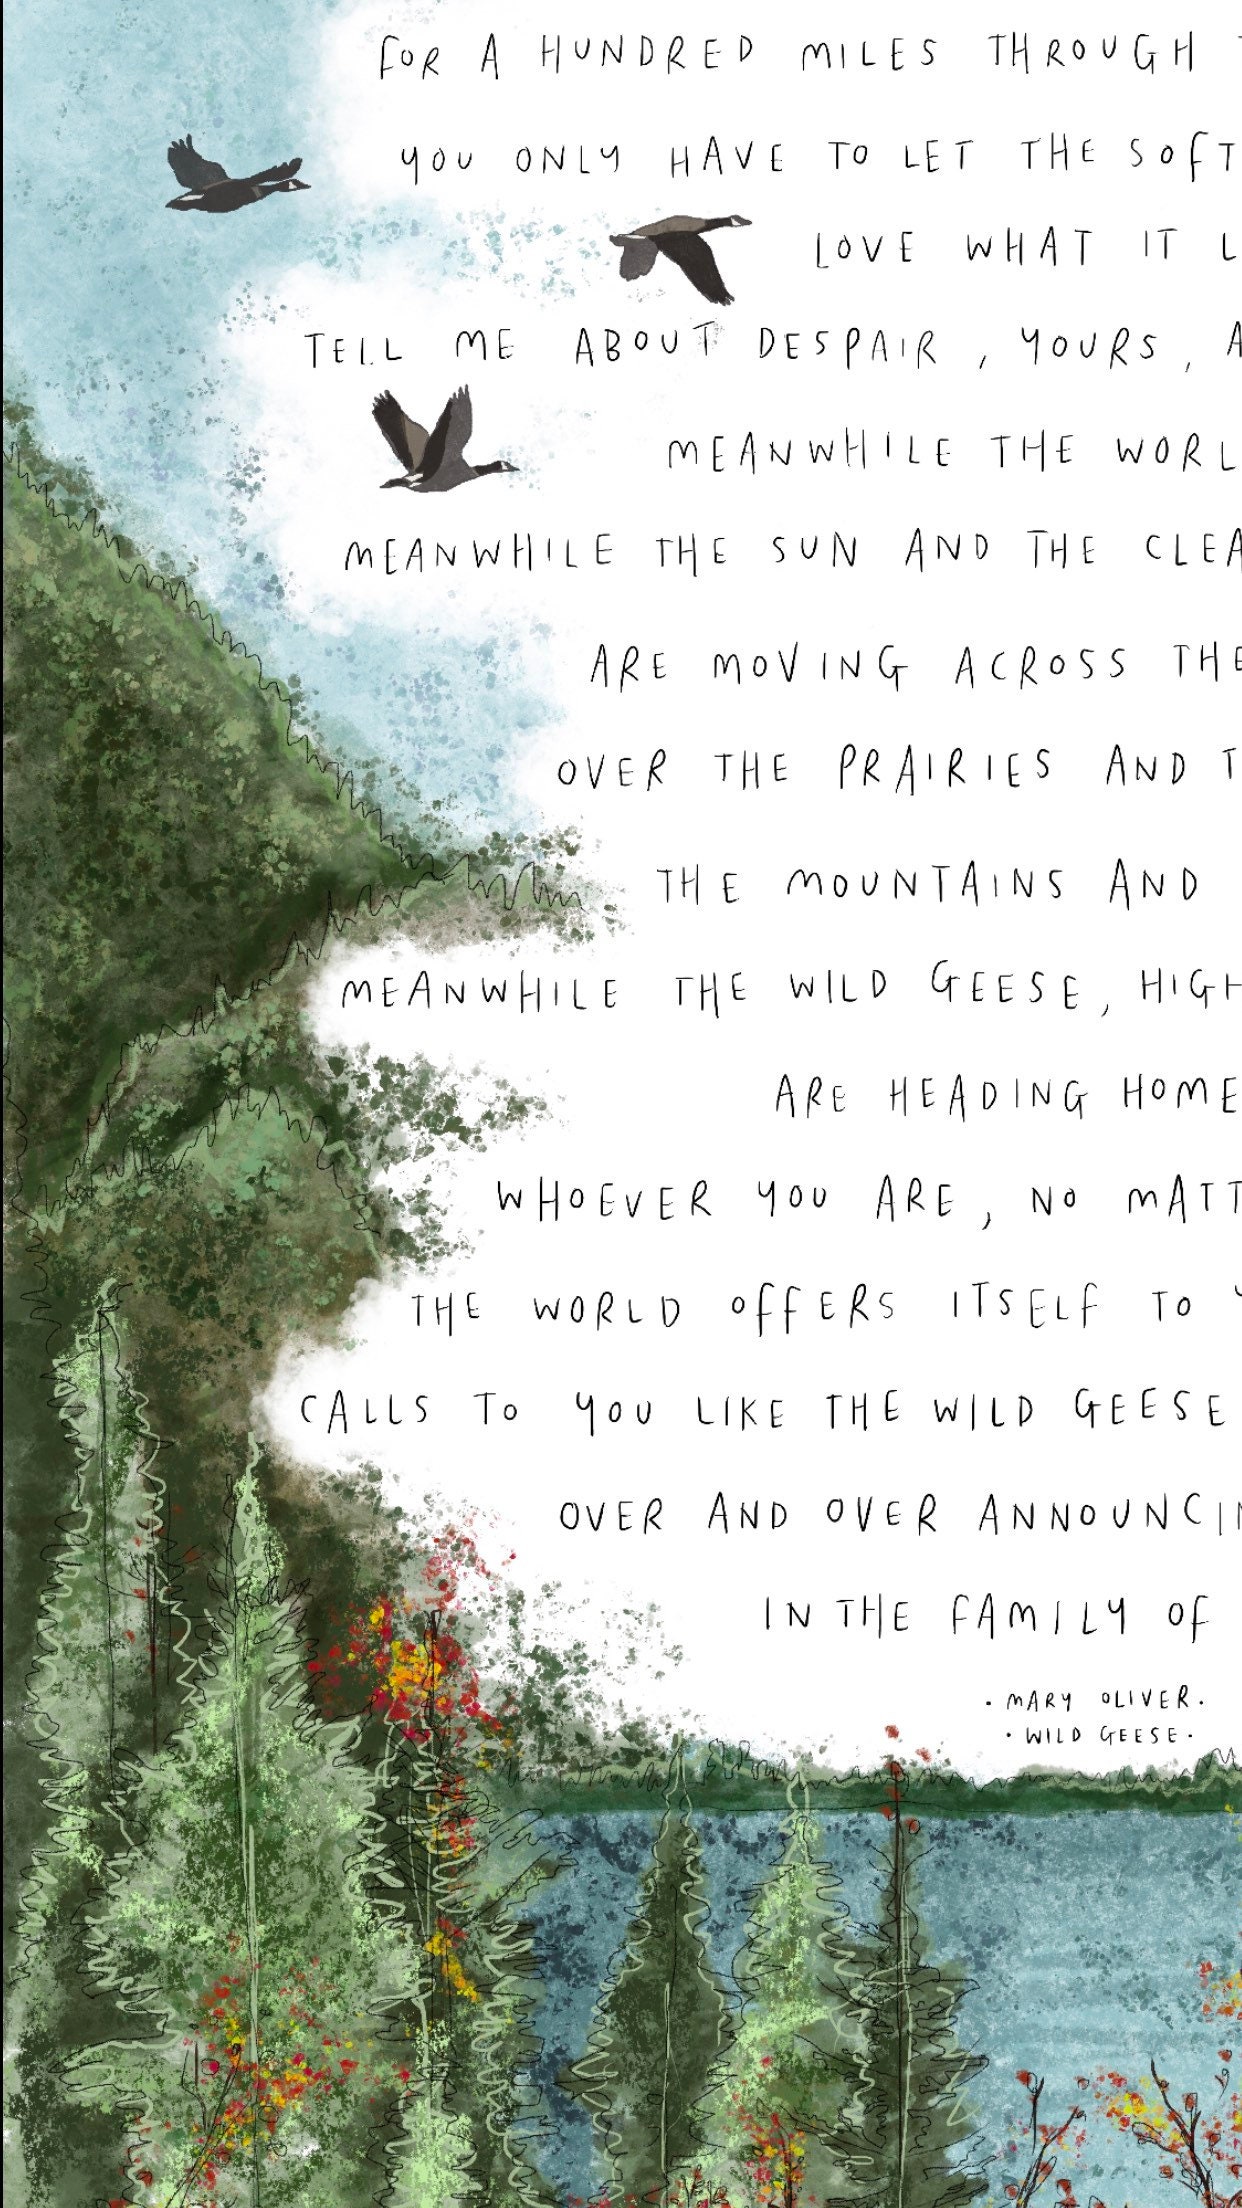 FOR A HUNDRED MILES THROUGH
YOU ONLY HAVE TO LET THE SOFT
LOVE WHAT IT L
TELL ME ABOUT DESPAIR, YOURS, A
MEANWHILE THE WORL
MEANWHILE THE SUN AND THE CLEA
ARE MOVING ACROSS THE
OVER THE PRAIRIES AND T
THE MOUNTAINS AND
MEANWHILE THE WILD GEESE, HIGH
ARE HEADING HOME
WHOEVER YOU ARE, NO MATT
THE WORLD OFFERS ITSELF TO Y
CALLS TO YOU LIKE THE WILD GEESE
OVER AND OVER ANNOUNCIN
IN THE FAMILY OF
· MARY OLIVER ·
· WILD GEESE ·